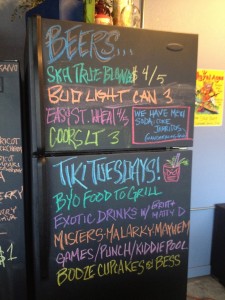 BEERS...
SKA TRUE BLONDE $4/5
BUD LIGHT CAN 3
EASY ST. WHEAT 4/5
COORS LT 3
WE HAVE MEXI
SODA: COKE
JARRITOS
TIKI TUESDAYS!
BYO FOOD TO GRILL
EXOTIC DRINKS W/
MATTY D
MISTERS-MALARKY/MAYHEM
GAMES/PUNCH/KIDDIE POOL
BOOZE CUPCAKES BESS
$1